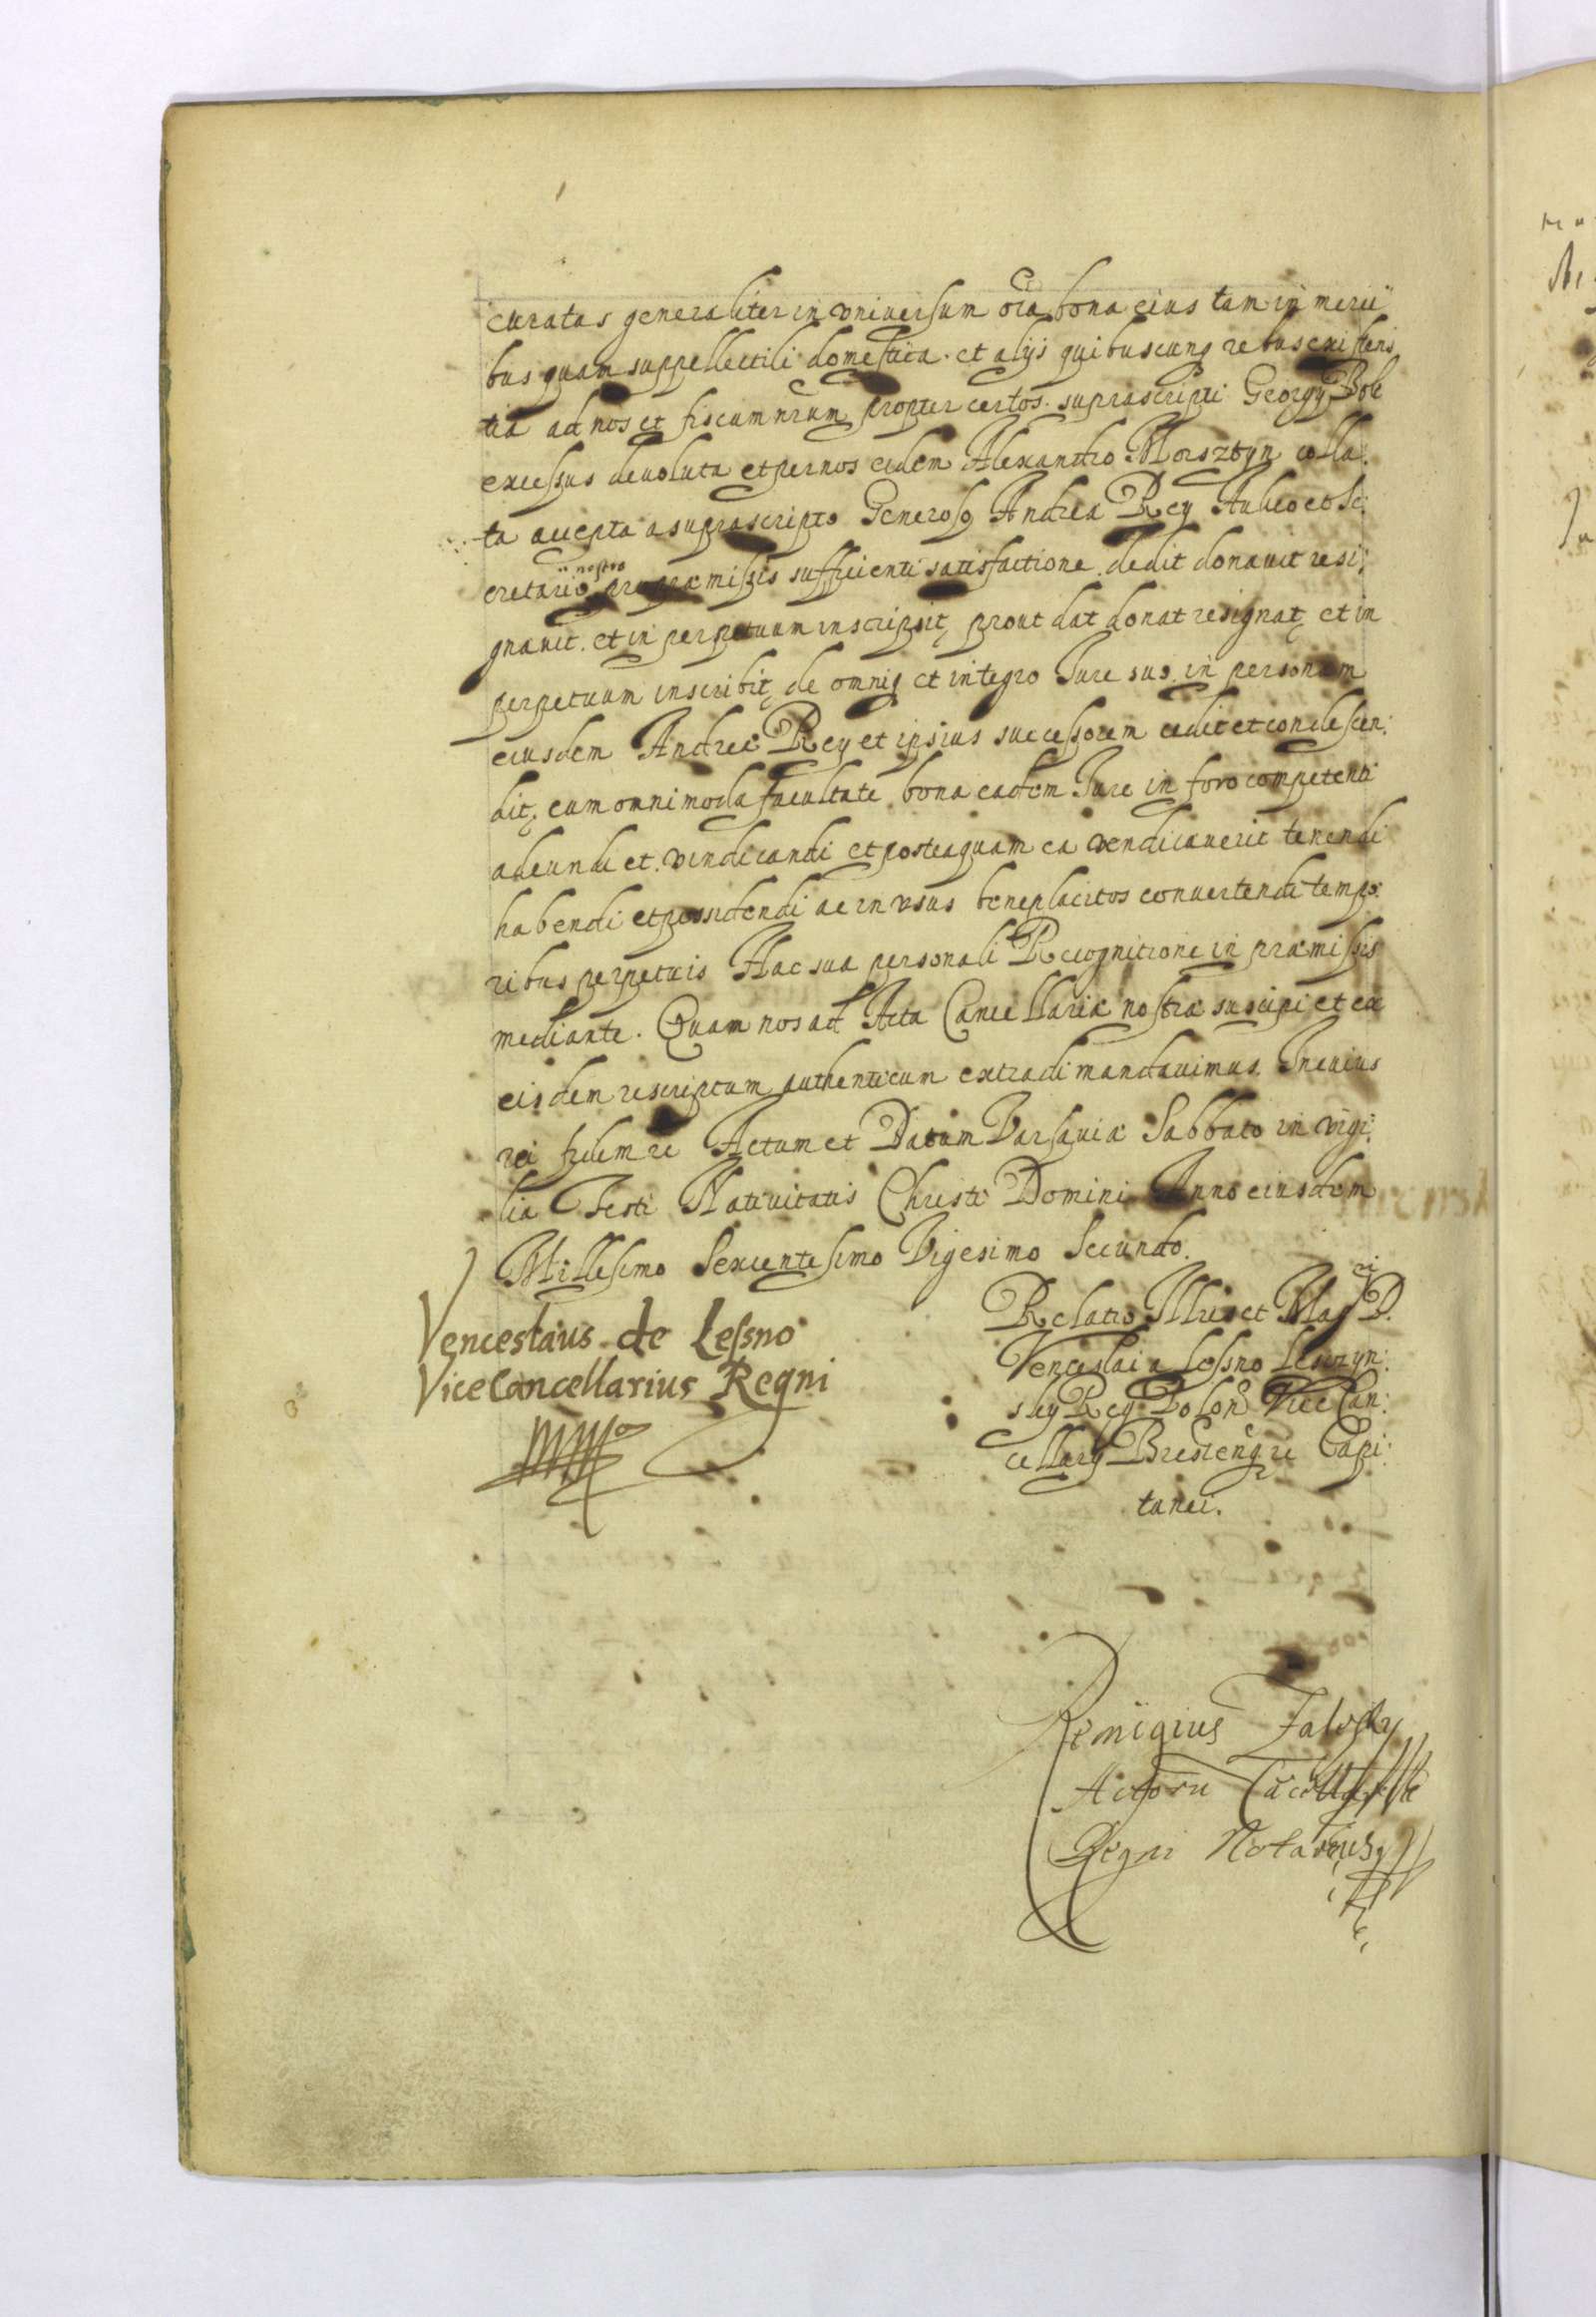 curatas generaliter in vniversum oĩa bona eius tam in merci
bus quam suppellectili domestica et alijs quibuscunq rebus existen
tia ad nos et fiscum nrũm propter certos suprascripti Georgij Bok
excessus devoluta et per nos eidem Alexandro Morsztyn colla:
ta accepta a suprascripto Generoso Andrea Rey Aulico et Se:
cretario nostro pro præmissis sufficienti satisfactione dedit donauit resi:
gnauit et in perpetuum inscripsit, prout dat donat resignat, et in
perpetuum inscribit, de omniq et integro Jure suo in personam
eiusdem Andreæ Rey et ipsius successorem cedit et condescen:
dit, cum omnimoda facultate bona eadem Jure in foro competenti
adeundi et vindicandi et posteaquam ea vendicauerit tenendi
habendi et possidendi ac in vsus beneplacitos conuertendi tempo:
ribus perpetuis Hac sua personali Recognitione in præmissis
mediante. Quam nos ad Acta Cancellariæ nostræ suscipi et ex
eisdem rescriptum authenticum extradi mandauimus. In cuius
rei fidem &c Actum et Datum Varsauiæ Sabbato in vigi:
lia Festi Natiuitatis Christi Domini Anno eiusdem
Millesimo Sexcentesimo Vigesimo Secundo.
Venceslaus de Lessno
ViceCancellarius Regni
mp
Relatio Illris et Magci D.
Venceslai a Lessno Lesczyn:
sky Reg Polon Vice Can:
cellarij Bresten qz Capi:
tanei.
Remigius Zalesky
Actoru Cacellariæ
Regni Notarius